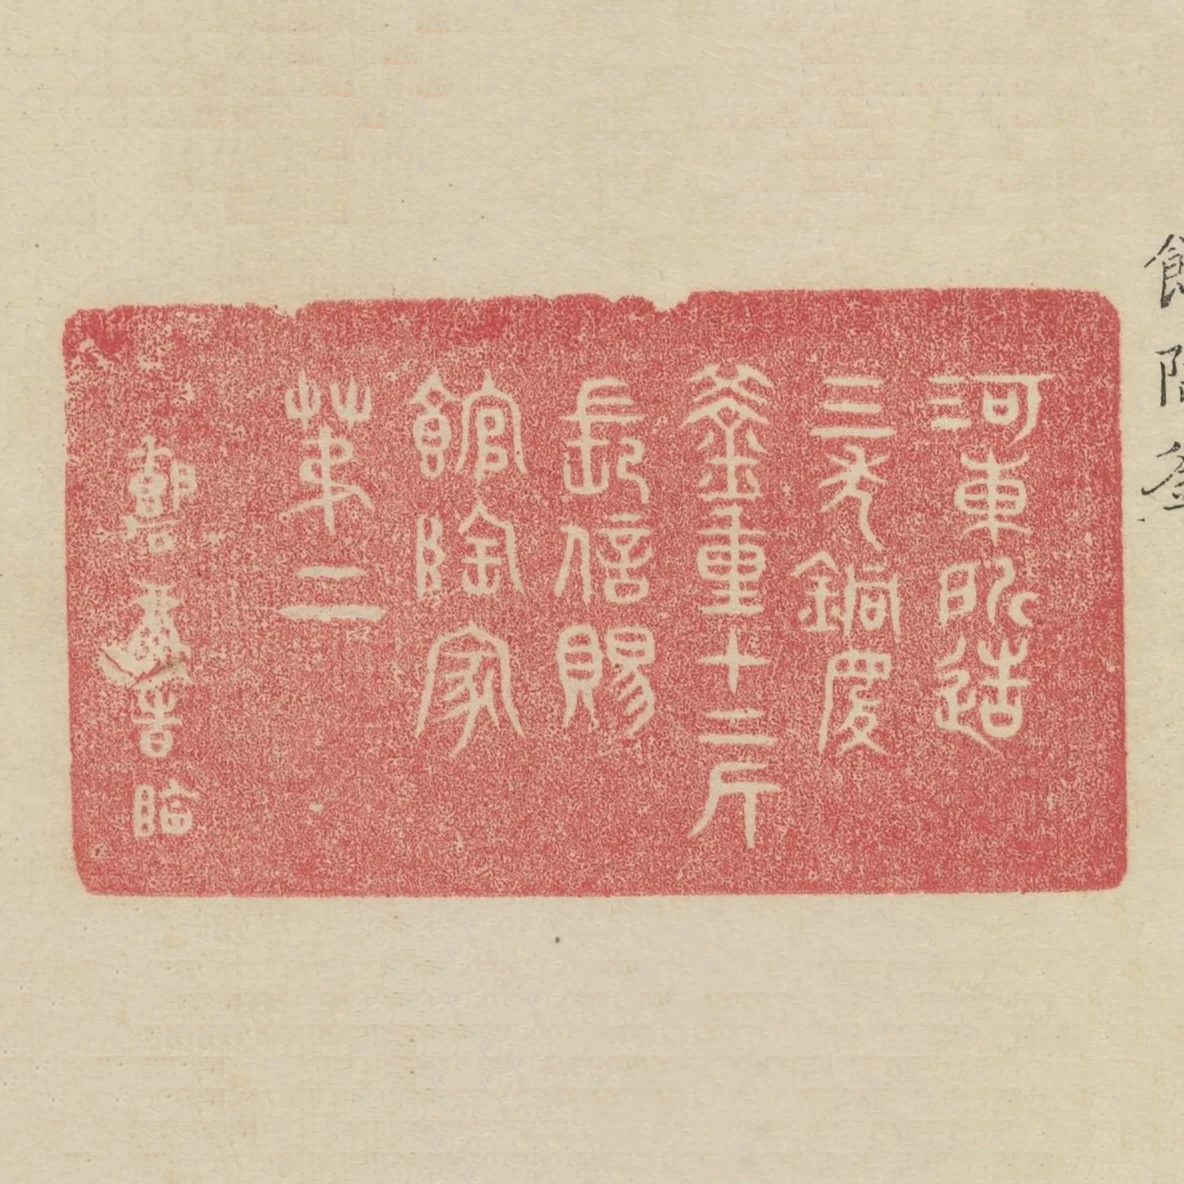 館陶釜
河東所造
三斗銅慶
釜重十二斤
長信賜
館陶家
第二
臨